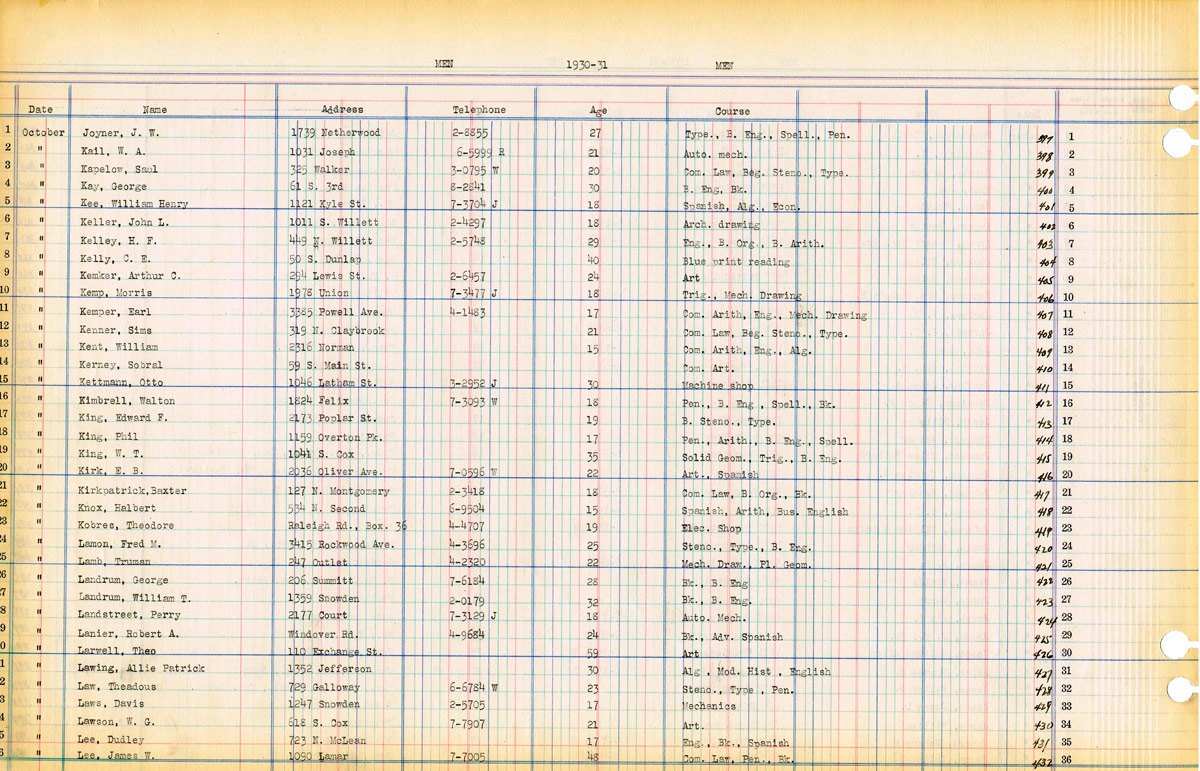 MEN 1930-31 MEN
Date Name Address Telephone Age Course
1 October Joyner, J. W. 1739 Netherwood 2-8855 27 Type., B. Eng., Spell., Pen. 397 1
2 " Kail, W. A. 1031 Joseph 6-5999 R 21 Auto. mech. 398 2
3 " Kapelow, Saul 325 Walker 3-0795 W 20 Com. Law, Beg. Steno., Type. 399 3
4 " Kay, George 61 S. 3rd 8-2841 30 B. Eng, Bk. 400 4
5 " Kee, William Henry 1121 Kyle St. 7-3704 J 18 Spanish, Alg., Econ. 401 5
6 " Keller, John L. 1011 S. Willett 2-4297 18 Arch. drawing 402 6
7 " Kelley, H. F. 449 N. Willett 2-5748 29 Eng., B. Org., B. Arith. 403 7
8 " Kelly, C. E. 50 S. Dunlap 40 Blue print reading 404 8
9 " Kemker, Arthur C. 294 Lewis St. 2-6457 24 Art 405 9
10 " Kemp, Morris 1978 Union 7-3477 J 18 Trig., Mech. Drawing 406 10
11 " Kemper, Earl 3385 Powell Ave. 4-1483 17 Com. Arith, Eng., Mech. Drawing 407 11
12 " Kenner, Sims 319 N. Claybrook 21 Com. Law, Beg. Steno., Type. 408 12
13 " Kent, William 2316 Norman 15 Com. Arith, Eng., Alg. 409 13
14 " Kerney, Sobral 59 S. Main St. Com. Art. 410 14
15 " Kettmann, Otto 1046 Latham St. 3-2952 J 30 Machine shop 411 15
16 " Kimbrell, Walton 1824 Felix 7-3093 W 18 Pen., B. Eng , Spell., Bk. 412 16
17 " King, Edward F. 2173 Poplar St. 19 B. Steno., Type. 413 17
18 " King, Phil 1159 Overton Pk. 17 Pen., Arith., B. Eng., Spell. 414 18
19 " King, W. T. 1041 S. Cox 35 Solid Geom., Trig., B. Eng. 415 19
20 " Kirk, E. B. 2036 Oliver Ave. 7-0596 W 22 Art., Spanish 416 20
21 " Kirkpatrick,Baxter 127 N. Montgomery 2-3418 18 Com. Law, B. Org., Bk. 417 21
22 " Knox, Halbert 534 N. Second 6-9504 15 Spanish, Arith, Bus. English 418 22
23 " Kobres, Theodore Raleigh Rd., Box. 36 4-4707 19 Elec. Shop 419 23
24 " Lamon, Fred M. 3415 Rockwood Ave. 4-3696 25 Steno., Type., B. Eng. 420 24
25 " Lamb, Truman 247 Outlet 4-2320 22 Mech. Draw., Pl. Geom. 421 25
26 " Landrum, George 206 Summitt 7-6184 28 Bk., B. Eng 422 26
27 " Landrum, William T. 1359 Snowden 2-0179 32 Bk., B. Eng. 423 27
8 " Landstreet, Perry 2177 Court 7-3129 J 18 Auto. Mech. 424 28
9 " Lanier, Robert A. Windover Rd. 4-9684 24 Bk., Adv. Spanish 425 29
0 " Larwell, Theo 110 Exchange St. 59 Art 426 30
1 " Lawing, Allie Patrick 1352 Jefferson 30 Alg , Mod. Hist , English 427 31
2 " Law, Theadous 729 Galloway 6-6784 W 23 Steno., Type , Pen. 428 32
3 " Laws, Davis 1247 Snowden 2-5705 17 Mechanics 429 33
4 " Lawson, W. G. 618 S. Cox 7-7907 21 Art. 430 34
5 " Lee, Dudley 723 N. McLean 17 Eng., Bk., Spanish 431 35
6 " Lee, James W. 1090 Lamar 7-7005 48 Com. Law, Pen., Bk. 432 36